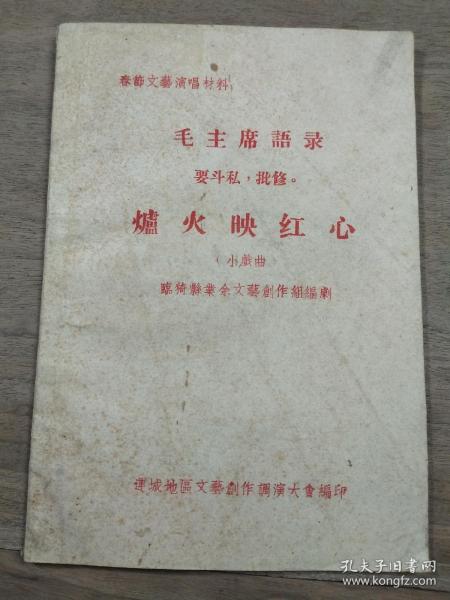 春節文藝演唱材料
毛主席語录
要斗私，批修。
爐火映红心
（小戲曲
臨猗縣業余文藝創作組編劇
運城地區文藝創作調演大會編印
孔夫子旧书网
www.kongfz.com